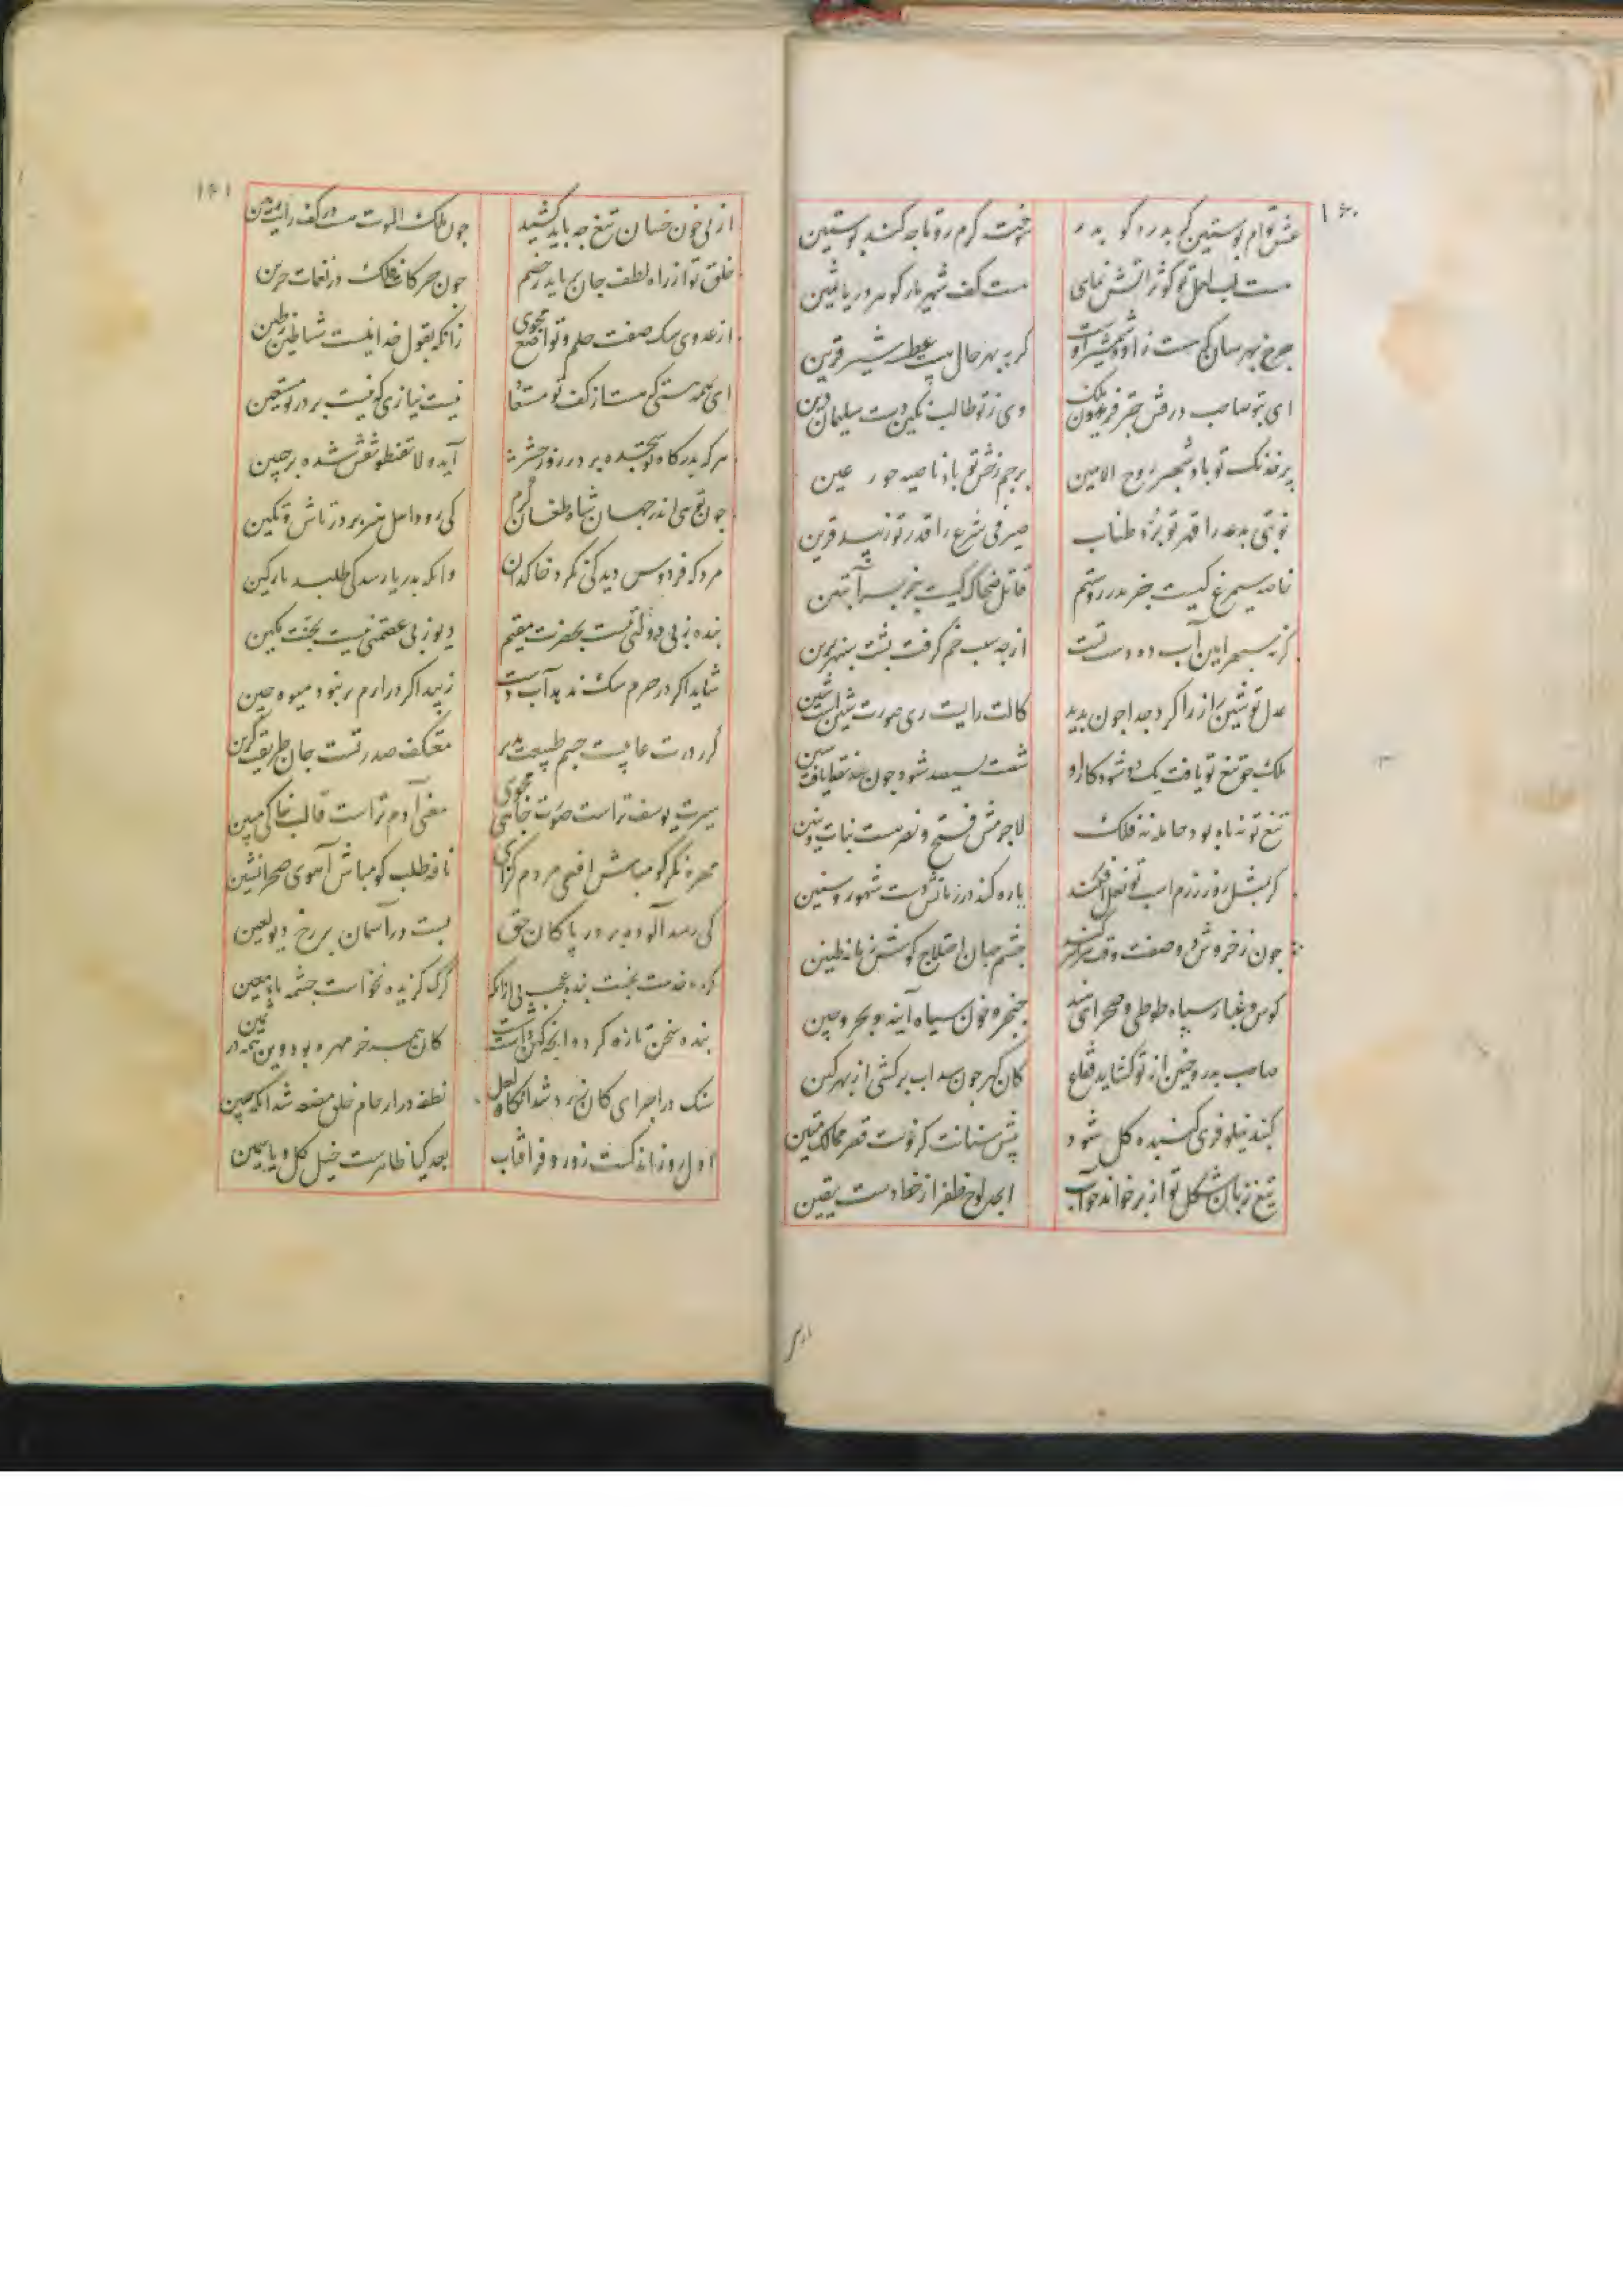 ۱۶۰
عشق توام پوستین کر بدرد کو بدر
سوخت کرم رو تا چه کند پوستین
هست لب لعل تو کوثر آتش نمای
هست کف شهریار کوهر دریا
جرخ بهر سان که هست زاده شمشیر اوست
کربه بهر حال هست عطسه شیر
ای بتو صاحب درفش فریدون ملک
وی ز تو طالب نکین دست سلیمان دین
پر خدنک تو باد شهپر روح الامین
پرجم رخش تو باد ناصیه حور عین
نوبتی بدعه را قهر تو برد طناب
صیرفی شرع را قدر تو زیبد
ناصیه سیمرغ کیست جز پدر روستم
قاتل ضحاک کیست جز پسر آبتین
کر نه سپهر این آب ده دست تست
از چه سبب خم کرفت پشت سپهر برین
عدل تو شین را ز را کرد جدا جون بدید
کالت رایت ری صورت شین است شین
ملک جو تیغ تو یافت یک دو شود کار او
شصت سیصد شود جون سه نقط یافت سین
تیغ تو نه ماه بود حامله نه فلک
لاجرمش فتح و نصرت بنات و بنین
کر بمثل روز رزم اسب تو نعل افکند
یاره کند در زمانش دست شهور و سنین
جون ز خروش دو صف وقعه
جشم جهان اختلاج کوش زمانه طنین
کوس و غبار سپاه طوطی و صحرای هند
خنجر و خون سیاه آینه و بحر و چین
صاحب بدر و حنین از تو کشاید قلاع
کان کهر جون سداب برکشی از بهر کین
کنبد نیلوفری کنبده کل شود
پیش سنانت کزوست قصر ممالک متین
تیغ زبان شکل تو از بر خواند جو آب
ابجد لوح ظفر از خط دست یقین
از بی
۱۶۱
از بی خون خسان تیغ چه باید کشید
جون ملک الموت هست در کف رایت
خلق تو از راه لطف جان برباید ز خصم
جون حرکات فلک در نغمات حزین
از عدوی سک صفت حلم و تواضع مجوی
زانکه بقول خدا نیست شیاطین ز طین
نیست نیازی که نیست بر در تو مستعین
هر که بدرکاه تو سجده برد روز حشر
آیه لا تقنطوا نقش شده بر جبین
جون تویی اندر جهان شاه طغان کرم
کی رود اهل هنر بر در تاش و تکین
مرد که فردوس دید کی نکرد خاکدان
وانکه بدریا رسد کی طلبد بارکین
بنده ز بی دولتی نیست بحضرت مقیم
دیو ز بی عصمتی نیست بجنت مکین
شاید اکر در حرم سک ندهد آب دست
زیبد اکر در ارم بز نبود میوه چین
کر ز درت غایبست جسم طبیعت پذیر
معتکف صدر تست جان طریقت کزین
سیرت یوسف تراست صورت چاهی مجوی
معنی آدم تراست قالب خاکی مبین
مهره نکر کو مباش افعی مردم کزای
نافه طلب کو مباش آهوی صحرا نشین
کی رسد آلوده بر در پاکان حق
بست در آسمان بر رخ دیو لعین
کرد خدمت بخست بنده عجب بی ازانکه
کرک کزیده نخواست چشمه ماء معین
بنده سخن تازه کرد وانچه کهن داشت شست
کان همه خر مهره بود وین همه در ثمین
سنک در اجزای کان زرد شد آنکاه لعل
نطفه در ارحام خلق مضغه شد آنکه جنین
اول روز اندکست زور و فر آفتاب
بعد کیا ظاهرست خیل کل و یاسمین